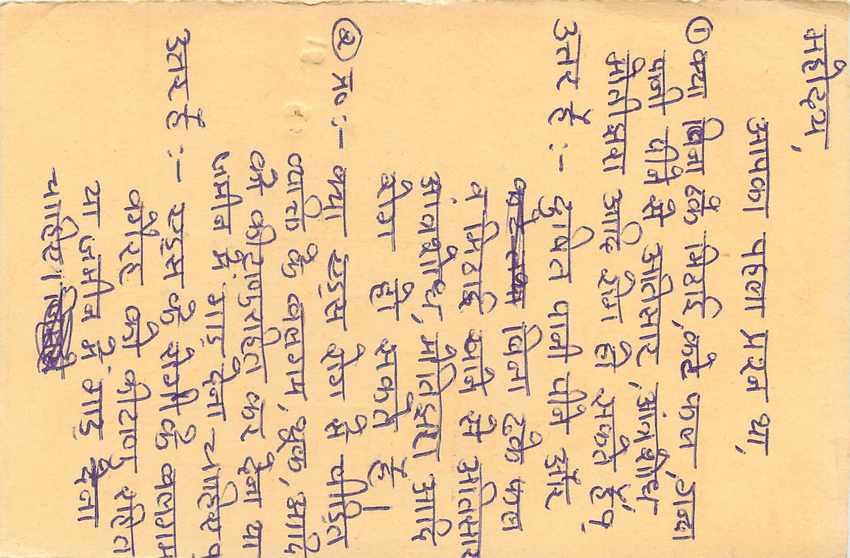 महोदय,
आपका पहला प्रश्न था,
① क्या बिना ढके मिठाई, कटे फल, गन्दा
पानी पीने से अतिसार, आंत्रशोथ
मोतीझरा आदि रोग हो सकते हैं?
उत्तर है :- दुषित पानी पीने और
बिना ढके फल
व मिठाई खाने से अतिसार
आंत्रशोथ, मोतिझरा आदि
रोग हो सकते हैं।
② प्र० :- क्या एड्स रोग से पीड़ित
व्यक्ति के बलगम, थुक, आदि
को कीटाणुरहित कर देना या
जमीन में गाड़ देना चाहिए?
उत्तर है :- एड्स के रोगी के बलगम
वगैरह को कीटाणु रहित
या जमीन में गाड़ देना
चाहिए।